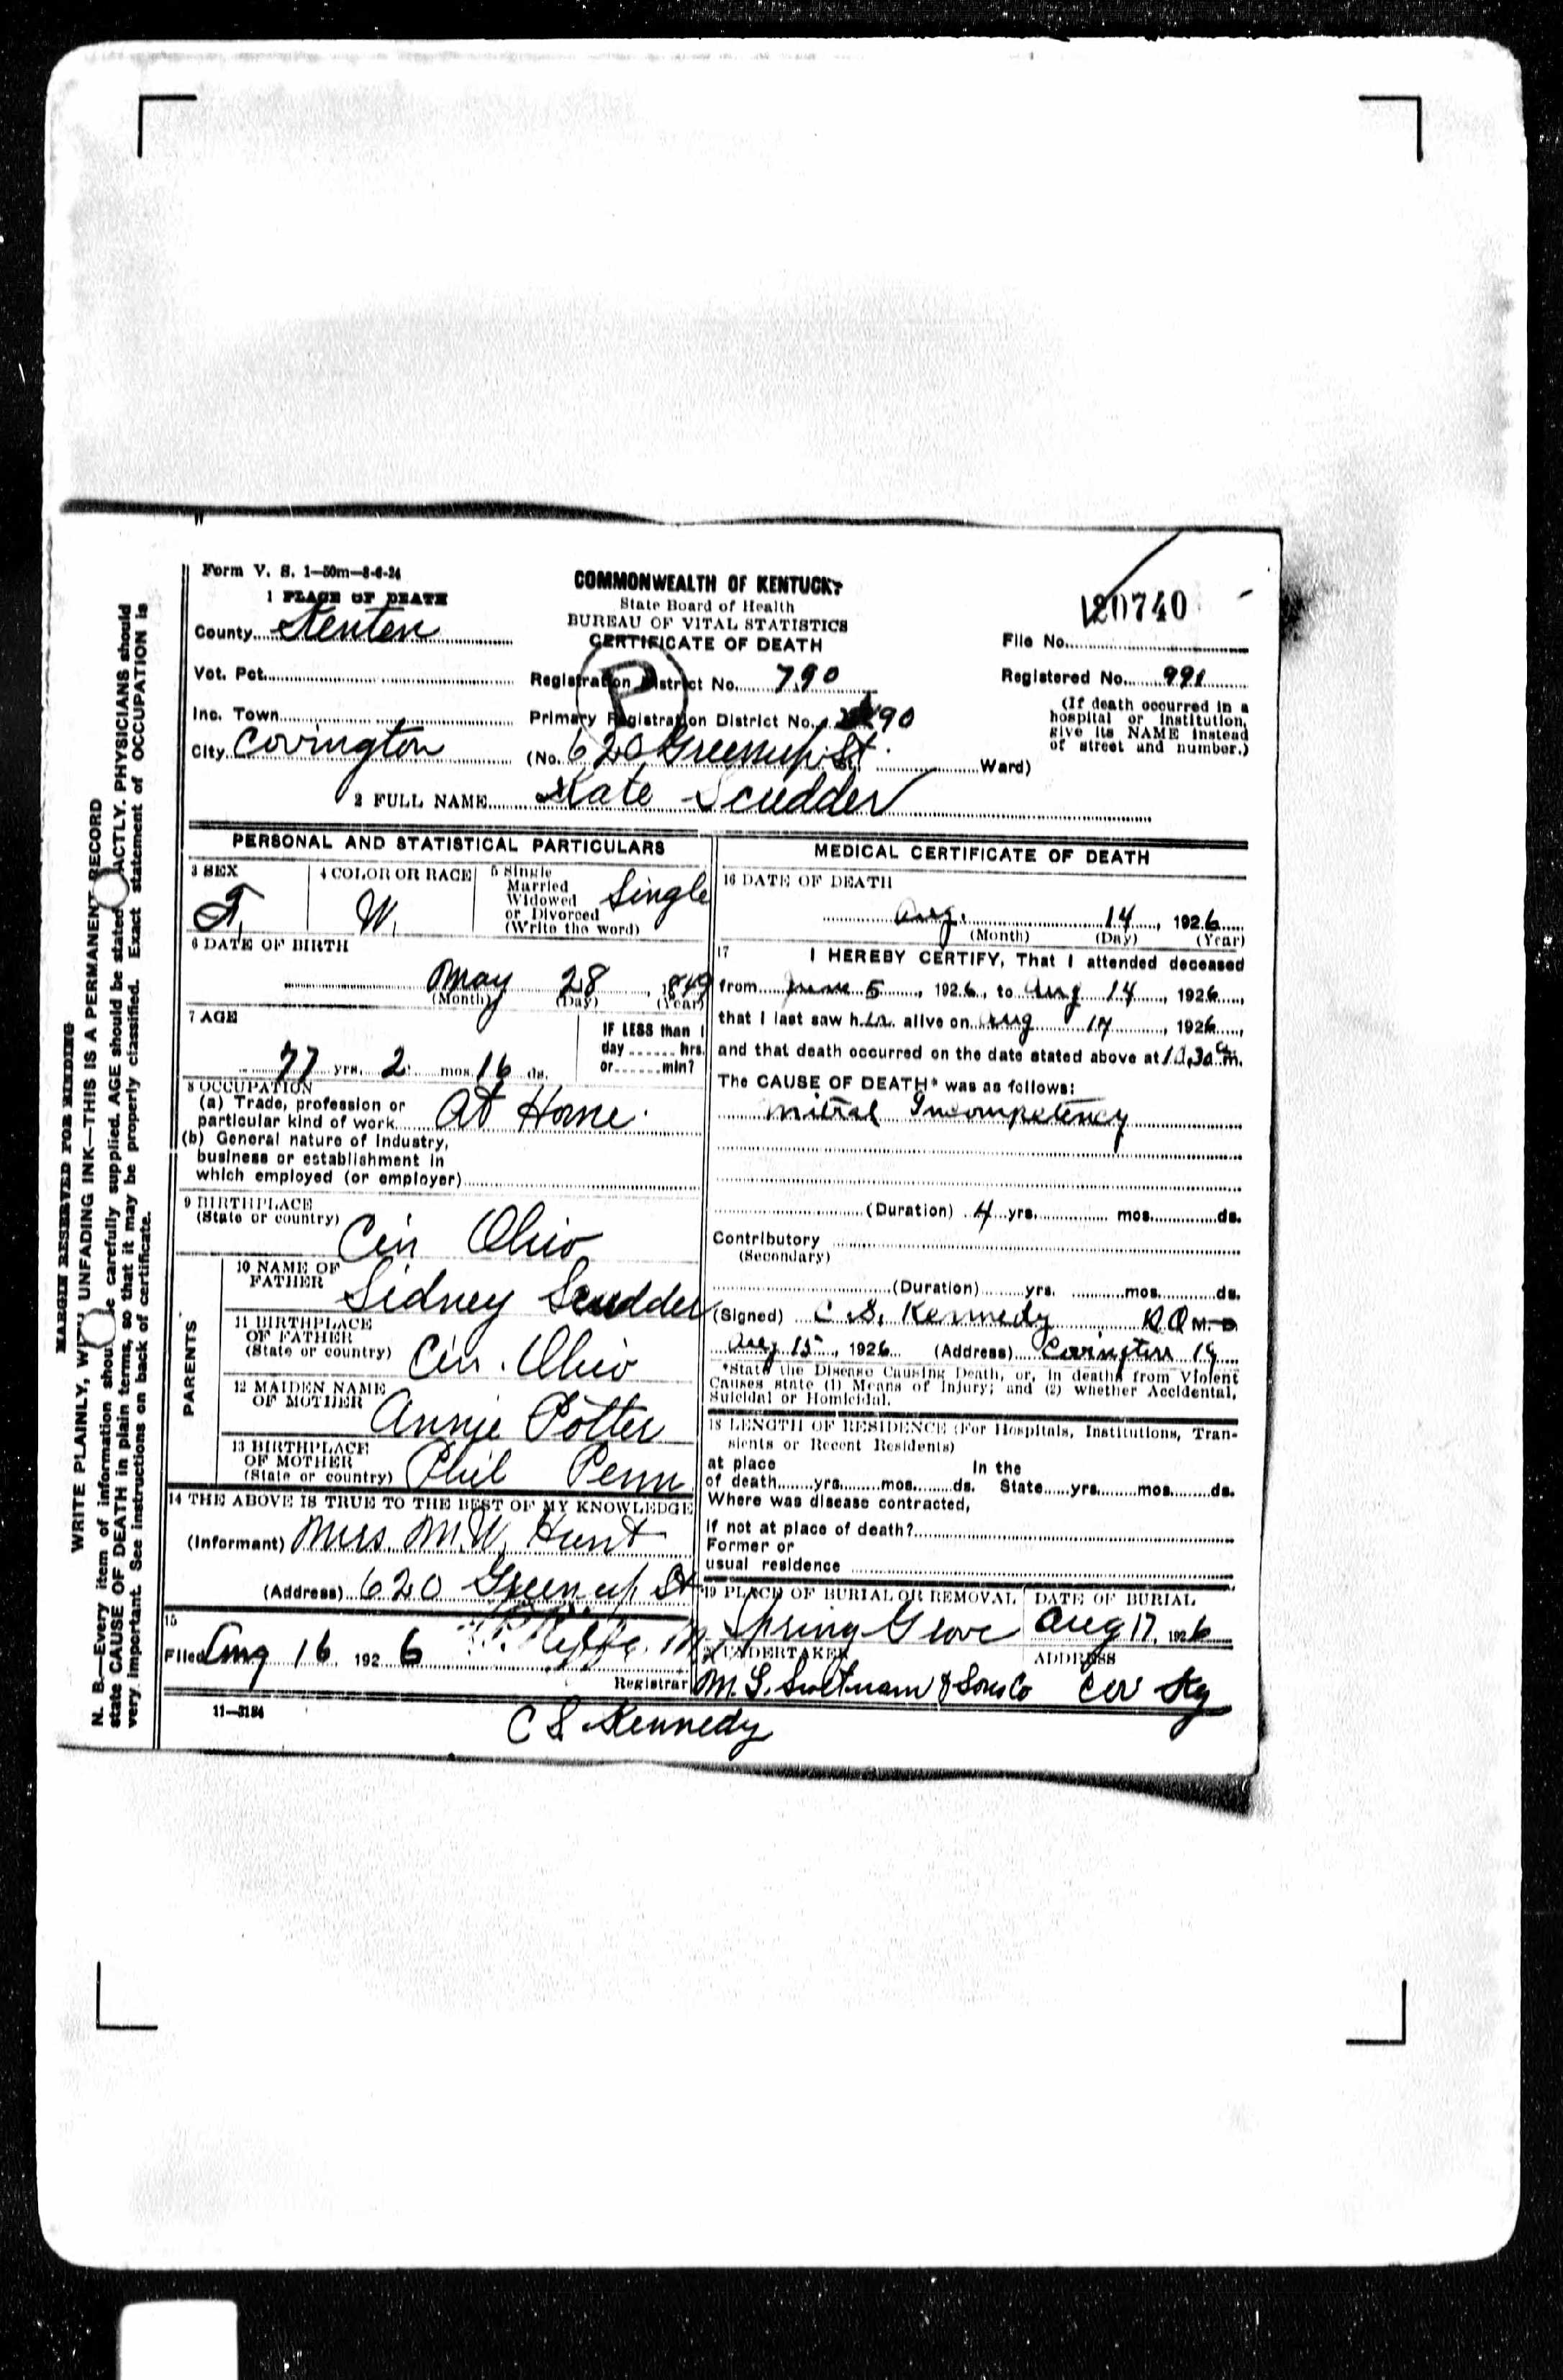 Form V. S. 1—50m—8-6-24
1 PLACE OF DEATH
County Kenton
Vot. Pct.
Inc. Town
City Covington
COMMONWEALTH OF KENTUCKY
State Board of Health
BUREAU OF VITAL STATISTICS
CERTIFICATE OF DEATH
P
Registration District No. 790
Primary Registration District No. 90
(No. 620 Greenup St. Ward)
20740
File No.
Registered No. 991
(If death occurred in a
hospital or institution,
give its NAME instead
of street and number.)
2 FULL NAME Kate Scudder
PERSONAL AND STATISTICAL PARTICULARS
3 SEX
F.
4 COLOR OR RACE
W.
5 Single
Married
Widowed
or Divorced
(Write the word)
Single
6 DATE OF BIRTH
May 28, 1849
(Month) (Day) (Year)
7 AGE
77 yrs. 2 mos. 16 ds.
IF LESS than 1
day hrs.
or min?
8 OCCUPATION
(a) Trade, profession or
particular kind of work At Home.
(b) General nature of Industry,
business or establishment in
which employed (or employer)
9 BIRTHPLACE
(State or country) Cin Ohio
PARENTS
10 NAME OF
FATHER Sidney Scudder
11 BIRTHPLACE
OF FATHER
(State or country) Cin. Ohio
12 MAIDEN NAME
OF MOTHER Annie Potter
13 BIRTHPLACE
OF MOTHER
(State or country) Phil Penn
14 THE ABOVE IS TRUE TO THE BEST OF MY KNOWLEDGE
(Informant) Mrs. M.W. Hunt
(Address) 620 Greenup St
15
Filed Aug 16 1926
Registrar
11—3184
C S. Kennedy
MEDICAL CERTIFICATE OF DEATH
16 DATE OF DEATH
Aug. 14, 1926
(Month) (Day) (Year)
17 I HEREBY CERTIFY, That I attended deceased
from June 5, 1926, to Aug 14, 1926,
that I last saw her alive on Aug 14, 1926,
and that death occurred on the date stated above at 10.30 a m.
The CAUSE OF DEATH* was as follows:
Mitral Incompetency
(Duration) 4 yrs. mos. ds.
Contributory
(Secondary)
(Duration) yrs. mos. ds.
(Signed) C. S. Kennedy D O M. D.
Aug 15, 1926 (Address) Covington Ky
*State the Disease Causing Death, or, in deaths from Violent
Causes state (1) Means of Injury; and (2) whether Accidental,
Suicidal or Homicidal.
18 LENGTH OF RESIDENCE (For Hospitals, Institutions, Tran-
sients or Recent Residents)
at place In the
of death yrs. mos. ds. State yrs. mos. ds.
Where was disease contracted,
If not at place of death?
Former or
usual residence
19 PLACE OF BURIAL OR REMOVAL
Spring Grove
DATE OF BURIAL
Aug 17, 1926
20 UNDERTAKER
M. G. Swetnam & Sons Co
ADDRESS
Cov Ky
MARGIN RESERVED FOR BINDING
WRITE PLAINLY, WITH UNFADING INK—THIS IS A PERMANENT RECORD
N. B.—Every item of information should be carefully supplied. AGE should be stated EXACTLY. PHYSICIANS should
state CAUSE OF DEATH in plain terms, so that it may be properly classified. Exact statement of OCCUPATION is
very important. See instructions on back of certificate.